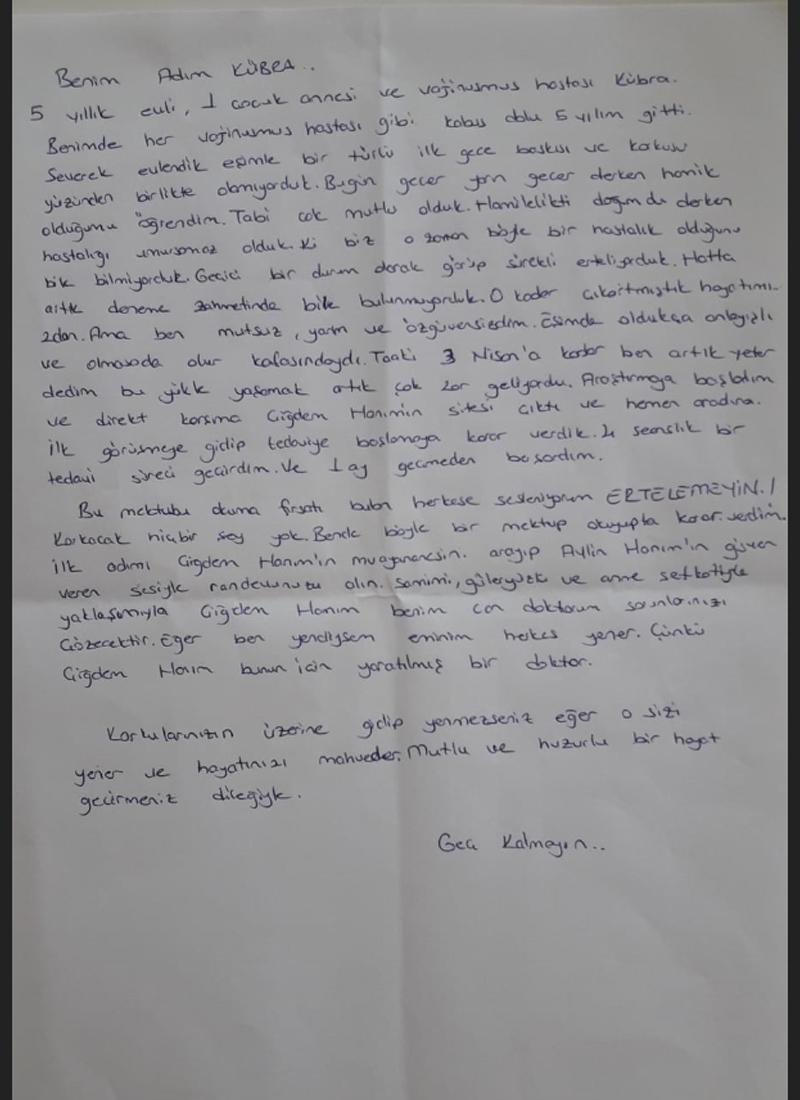 Benim Adım KÜBRA..
5 yıllık evli, 1 cocuk annesi ve vajinusmus hastası Kübra.
Benimde her vajinusmus hastası gibi kabus dolu 5 yılım gitti.
Severek evlendik eşimle bir türlü ilk gece baskısı ve korkusu
yüzünden birlikte olamıyorduk. Bugün geçer yarın geçer derken hamile
olduğumu öğrendim. Tabi cok mutlu olduk. Hamilelikti doğumdu derken
hastalığı umursamaz olduk. Ki biz o zaman böyle bir hastalık olduğunu
bile bilmiyorduk. Gecici bir durum olarak görüp sürekli erteliyorduk. Hatta
artık deneme zahmetinde bile bulunmuyorduk. O kadar cıkartmıştık hayatımı-
zdan. Ama ben mutsuz, yarım ve özgüvensizdim. Eşimde oldukça anlayışlı
ve olmasada olur kafasındaydı. Taaki 3 Nisan'a kadar ben artık yeter
dedim bu yükle yaşamak artık çok zor geliyordu. Araştırmaya başladım
ve direkt karşıma Çiğdem Hanım'ın sitesi çıktı ve hemen aradım.
İlk görüşmeye gidip tedaviye başlamaya karar verdik. 4 seanslık bir
tedavi süreci geçirdim. Ve 1 ay geçmeden başardım.
Bu mektubu okuma fırsatı bulan herkese sesleniyorum ERTELEMEYİN!
Korkacak hiçbir şey yok. Bende böyle bir mektup okuyupta karar verdim.
İlk adımı Çigdem Hanım'ın muayanehanesin. arayıp Aylin Hanım'ın güven
veren sesiyle randevunuzu alın. Samimi, güleryüzlü ve anne şefkatiyle
yaklaşımıyla Çiğdem Hanım benim can doktorum sorunlarınızı
çözecektir. Eğer ben yendiysem eminim herkes yener. Çünkü
Çiğdem Hanım bunun için yaratılmış bir doktor.
Korkularınızın üzerine gidip yenmezseniz eğer o sizi
yener ve hayatınızı mahveder. Mutlu ve huzurlu bir hayat
geçirmeniz dileğiyle.
Geç Kalmayın..